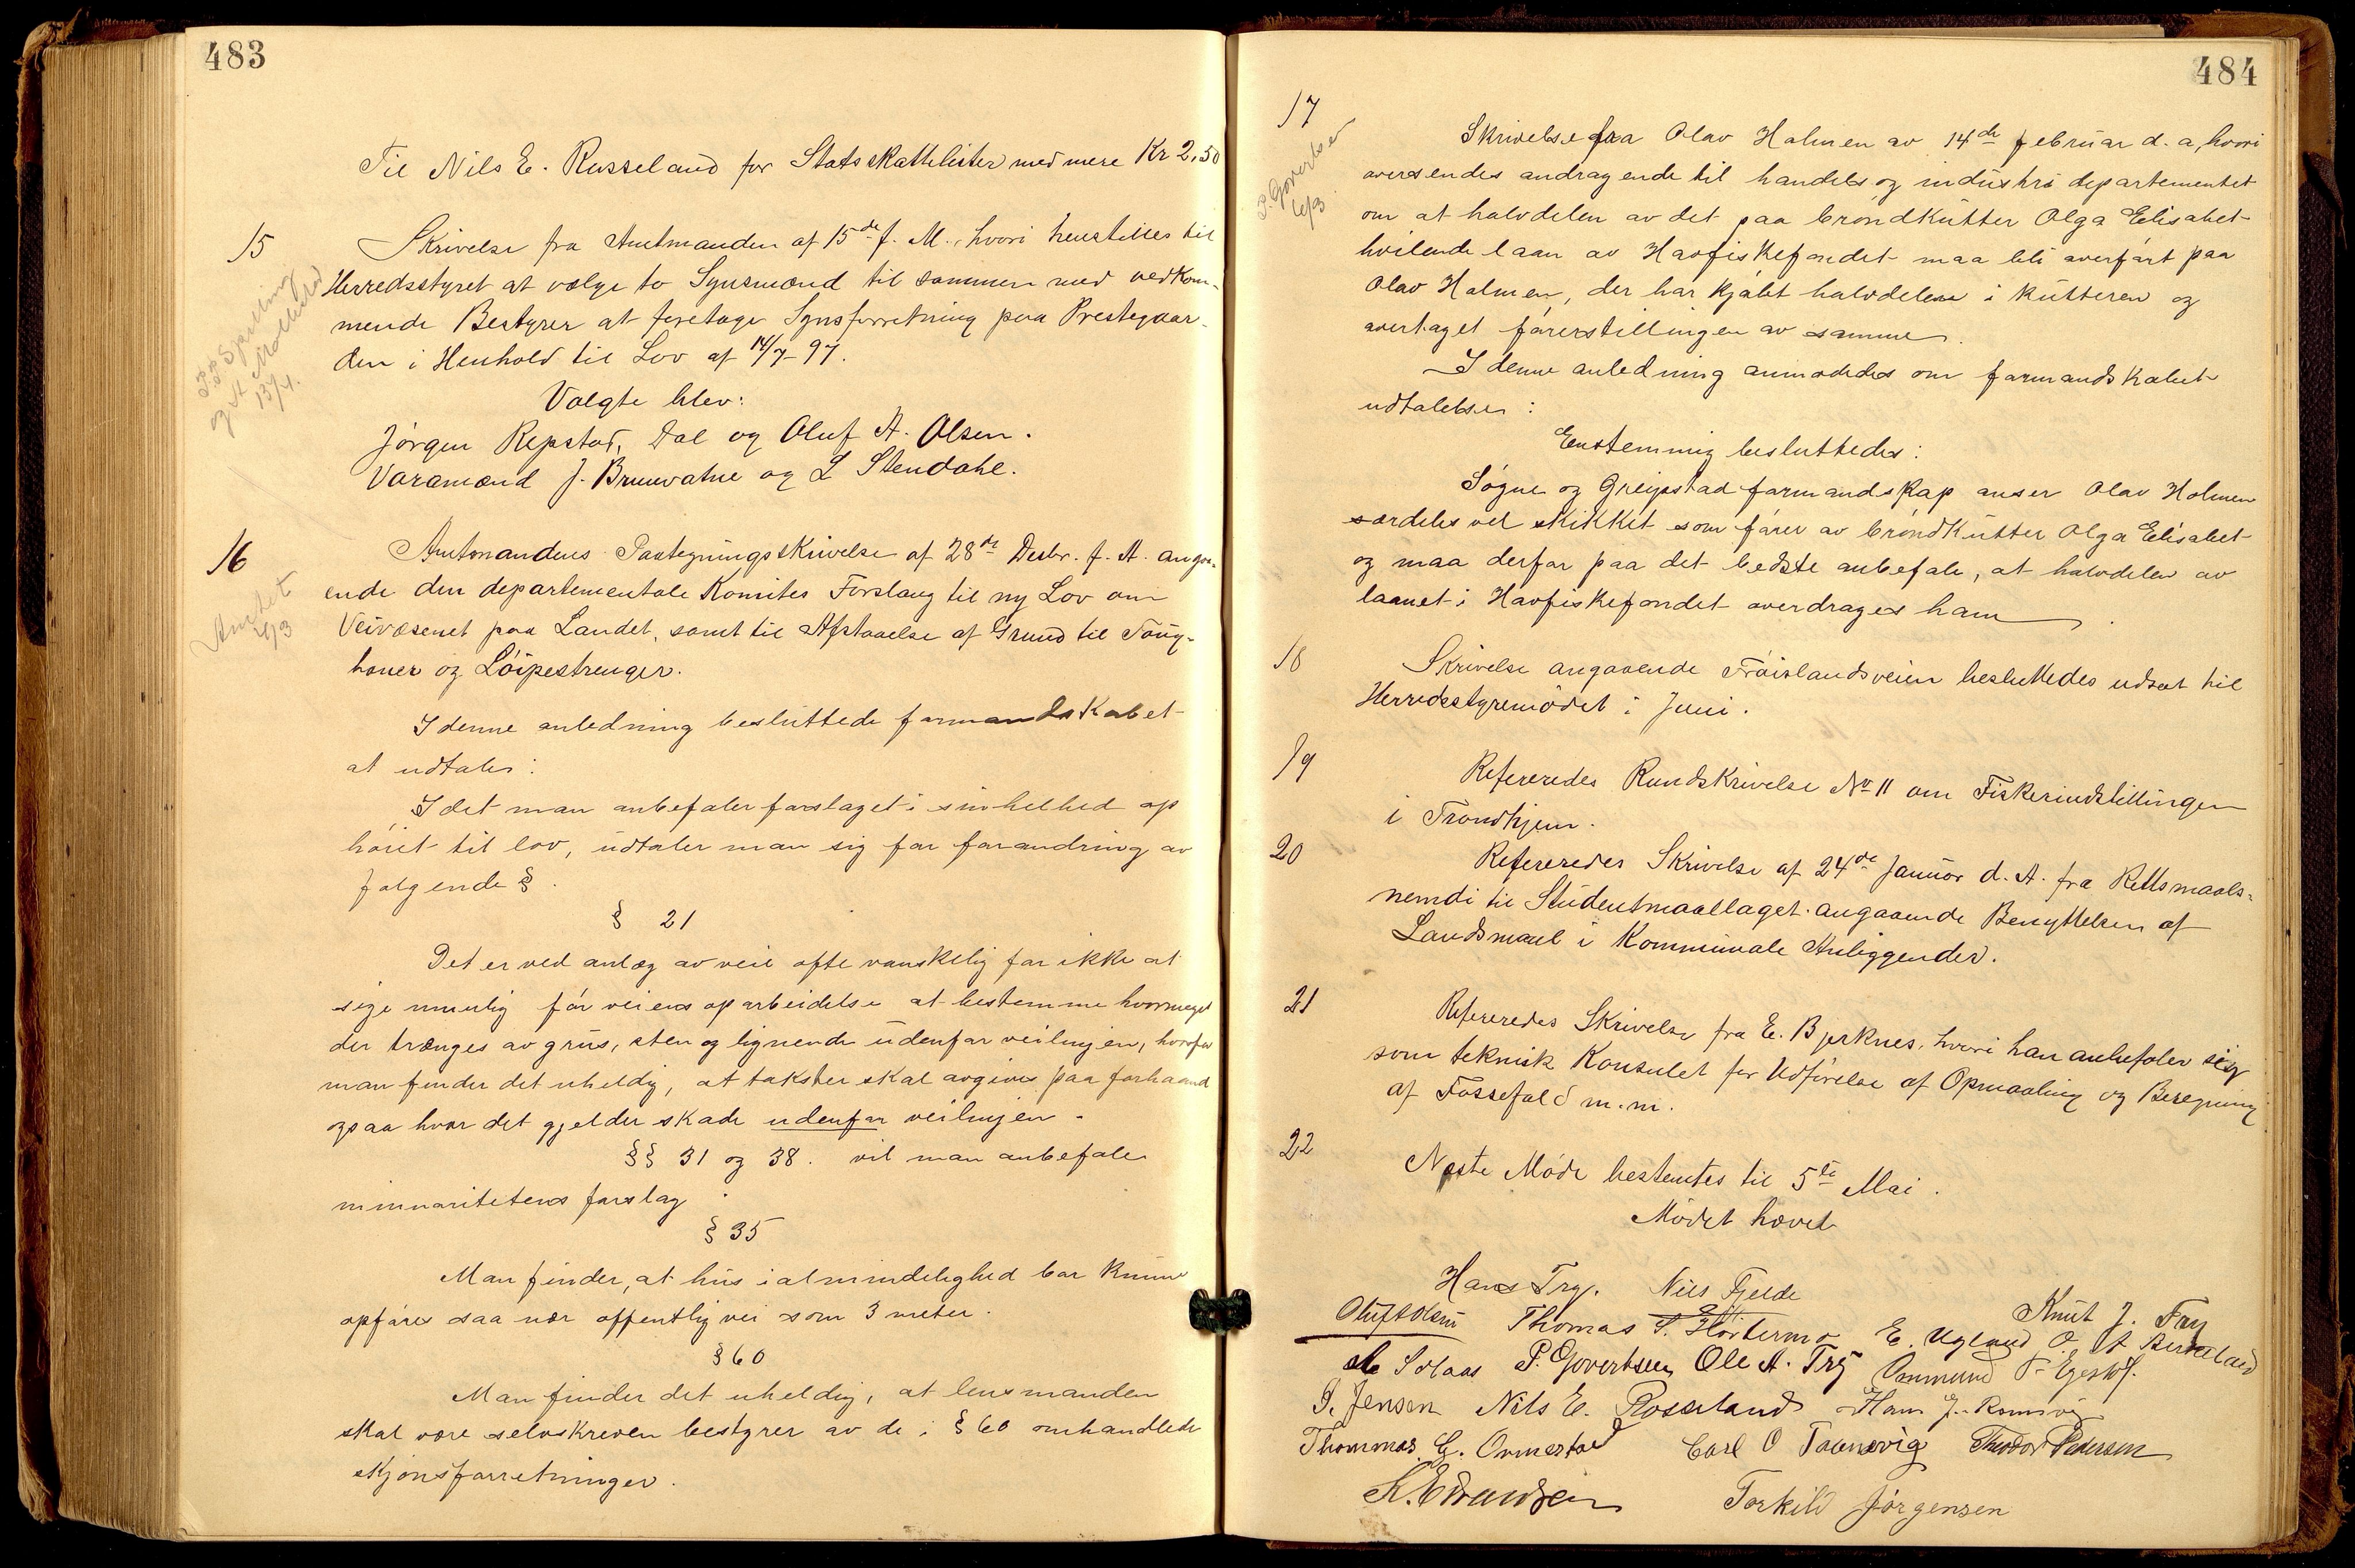 483
Til Nils E. Rosseland for Statsskattelister med mere Kr 2,50
15
Skrivelse fra Amtmanden af 15de f. M., hvori henstilles til
Herredsstyret at vælge to Synsmænd til sammen med vedkom-
mende Bestyrer at foretage Synsforretning paa Prestegaar-
den i Henhold til Lov af 14/7-97.
Valgte blev:
Jörgen Repstad, Dal og Oluf A. Olsen.
Varamænd J. Brunvatne og L Stendahl.
16
Amtmandens Paategningsskrivelse af 28de Desbr. f. A. angaa-
ende den departementale Komites Forslag til ny Lov om
Veivæsenet paa Landet, samt til Afstaaelse af Grund til Taug-
baner og Löipestrenger.
Amtet
6/3
I denne anledning besluttede formandskabet
at udtale:
I det man anbefaler forslaget i sin helhed op
höiet til lov, udtaler man sig for forandring av
fölgende §.
§ 21
Det er ved anlæg av veie ofte vanskelig for ikke at
sige umulig för veiens oparbeidelse at bestemme hvormeget
der trænges av grus, sten og lignende udenfor veilinjen, hvorfor
man finder det uheldig, at takster skal avgives paa forhaand
ogsaa hvor det gjelder skade udenfor veilinjen.
§§ 31 og 38. vil man anbefale
minnoritetens forslag.
§ 35
Man finder, at hus i almindelighed bör kunne
opföres saa nær offentlig vei som 3 meter.
§ 60
Man finder det uheldig, at lensmanden
skal være selvskreven bestyrer av de i § 60 omhandlede
skjönsforretninger.
484
17
P. Govertsen
6/3
Skrivelse fra Olav Holmen av 14de februar d. a, hvori
oversendes andragende til handels og industri departementet
om at halvdelen av det paa bröndkutter Olga Elisabet
hvilende laan av Havfiskefondet maa bli overfört paa
Olav Holmen, der har kjöbt halvdelen i kutteren og
overtaget förerstillingen av samme.
I denne anledning anmodedes om formandskabet
udtalelse:
Enstemmig besluttedes:
Sögne og Greipstad formandskap anser Olav Holmen
særdeles vel skikket som förer av bröndkutter Olga Elisabet
og maa derfor paa det bedste anbefale, at halvdelen av
laanet i Havfiskefondet overdrages ham.
18
Skrivelse angaaende Fröislandsveien besluttedes udsat til
Herredsstyremödet i Juni.
19
Refereredes Rundskrivelse No 11 om Fiskeriudstillingen
i Trondhjem.
20
Refereredes Skrivelse af 24de Januar d. A. fra Rettsmaals-
nemdi til Studentmaallaget angaaende Benyttelsen af
Landsmaal i Kommunale Anliggender.
21
Refereredes Skrivelse fra E. Bjerknes, hvori han anbefaler sig
som teknisk Konsulet for Udförelse af Opmaaling og Beregning
af Fossefald m.m.
22
Næste Möde bestemtes til 5te Mai.
Mödet hævet
Hans Try. Nils Fjelde
Knut J. Try
Oluf A Olsen Thomas S. E. Ugland O. A Berkeland
P. Govertsen Ole A. Try Ommund
S. Jensen Nils E. Rosseland Hans J. Romsvig
Thommas G. Ormestad Carl O Taanevig Theodor Pedersen
Torkild Jörgensen